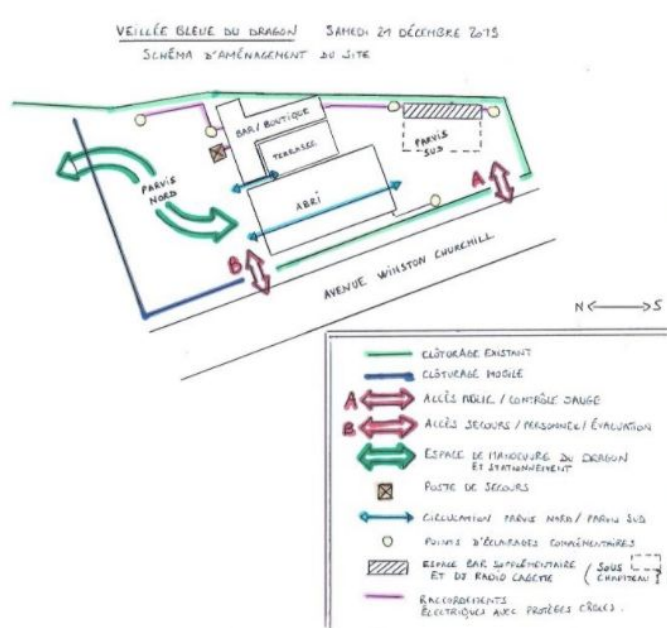 VEILLÉE BLEUE DU DRAGON SAMEDI 21 DÉCEMBRE 2019
SCHÉMA D'AMÉNAGEMENT DU SITE
BAR/BOUTIQUE
TERRASSE
PARVIS
SUD
PARVIS
NORD
ABRI
A
B
AVENUE WINSTON CHURCHILL
N S
CLÔTURAGE EXISTANT
CLÔTURAGE MOBILE
A ACCÈS PUBLIC / CONTRÔLE JAUGE
B ACCÈS SECOURS / PERSONNEL / ÉVACUATION
ESPACE DE MANOEUVRE DU DRAGON
ET STATIONNEMENT
POSTE DE SECOURS
CIRCULATION PARVIS NORD / PARVIS SUD
POINTS D'ÉCLAIRAGES COMPLÉMENTAIRES
ESPACE BAR SUPPLÉMENTAIRE (SOUS
ET DJ RADIO CHAPITEAU)
RACCORDEMENTS
ÉLECTRIQUES AVEC PROTÈGES CÂBLES.